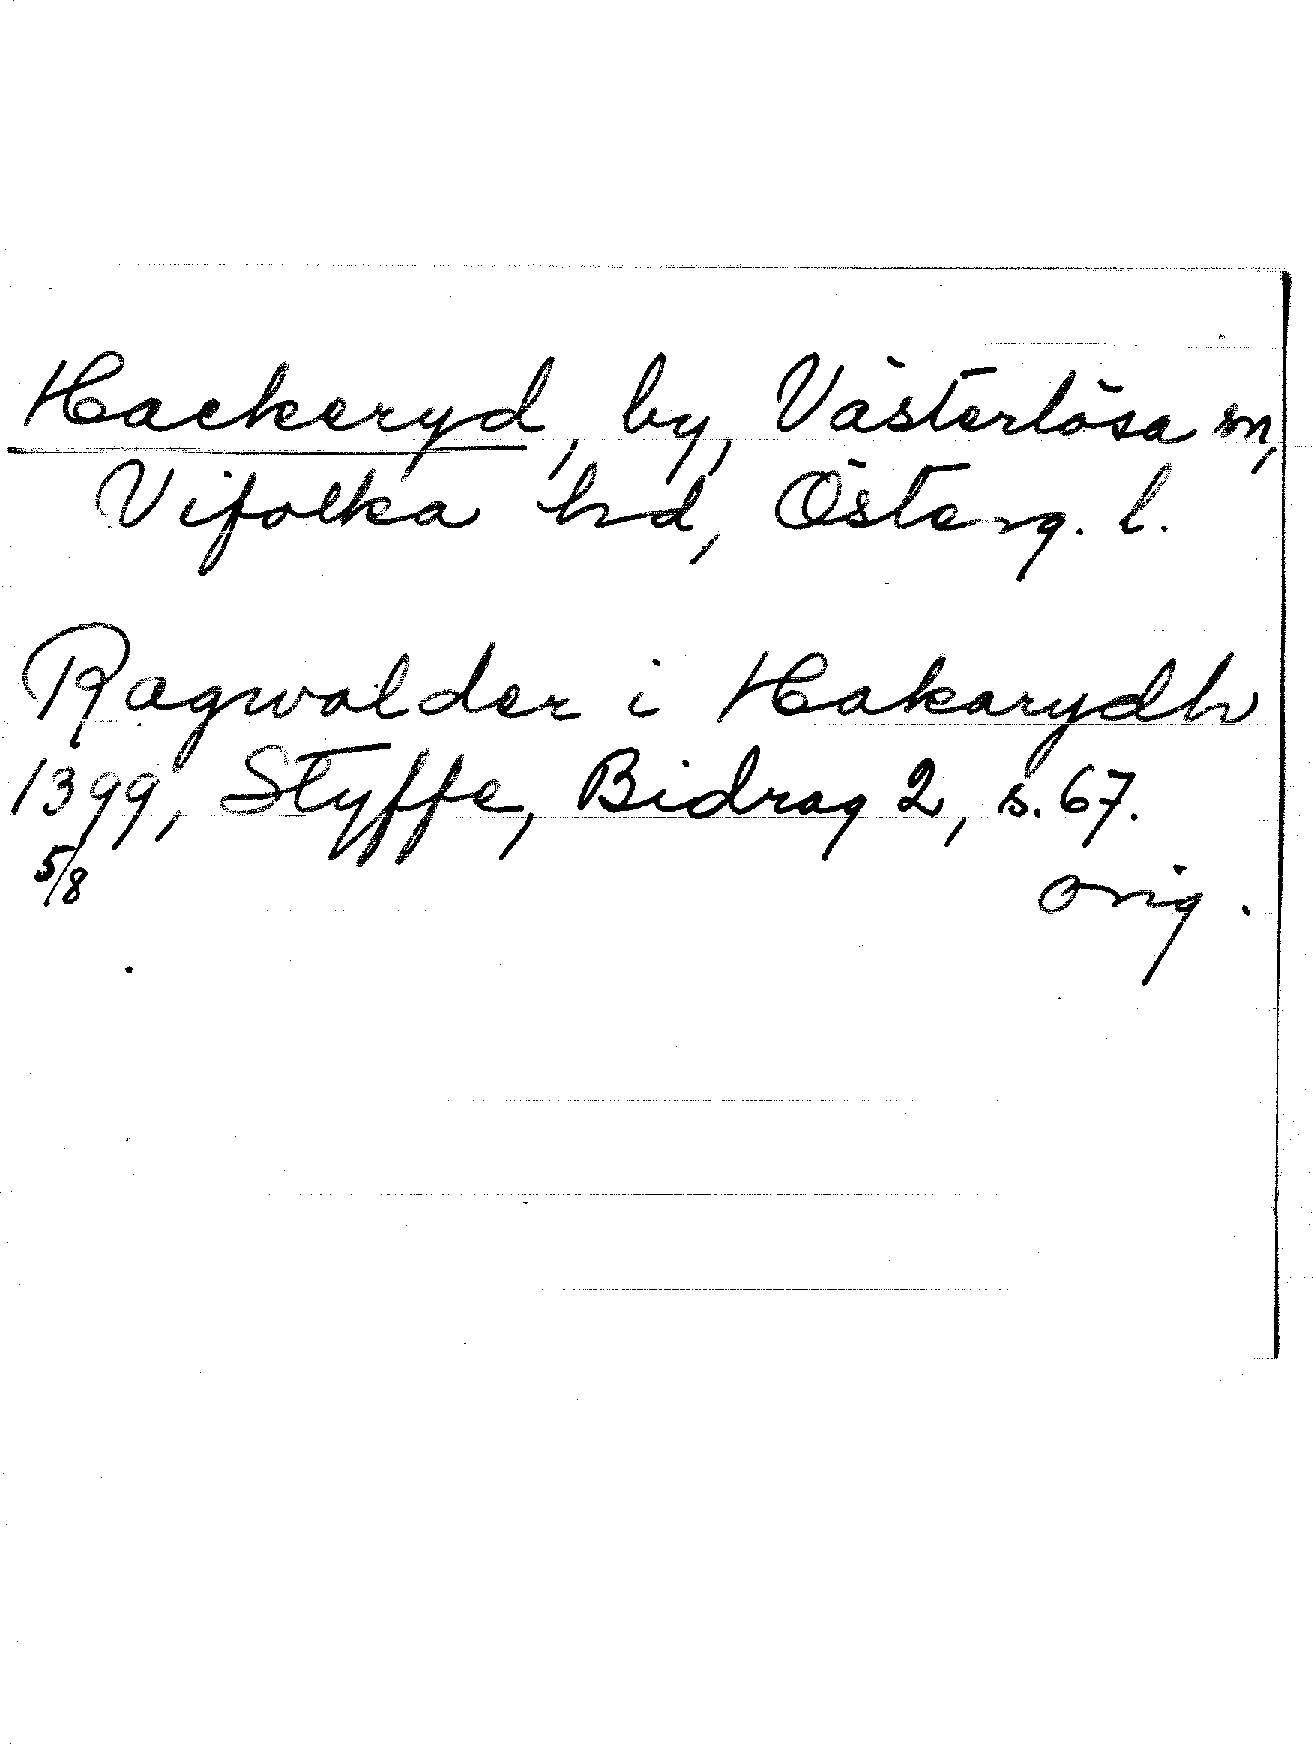 Hackeryd, by, Västerlösa sn,
Vifolka hd, Österg. l.
Ragwalder i Hakarydh
1399, Styffe, Bidrag 2, s. 67.
5/8
orig.